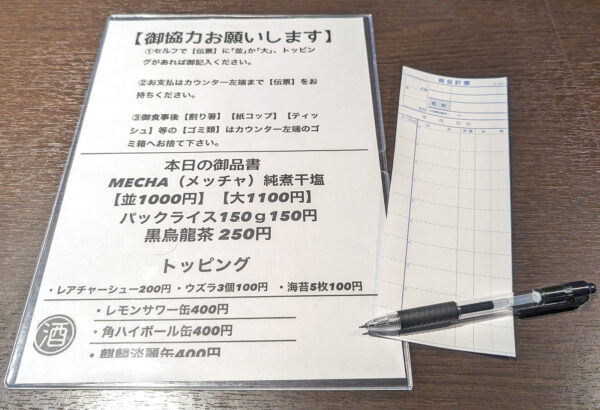 【御協力お願いします】
①セルフで【伝票】に「並」か「大」、トッピン
グがあれば御記入ください。
②お支払はカウンター左端まで【伝票】をお
持ちください。
③御食事後【割り箸】【紙コップ】【ティッ
シュ】等の【ゴミ類】はカウンター左端のゴ
ミ箱へお捨て下さい。
本日の御品書
MECHA（メッチャ）純煮干塩
【並1000円】【大1100円】
パックライス150g150円
黒烏龍茶 250円
トッピング
・レアチャーシュー200円 ・ウズラ3個100円 ・海苔5枚100円
・レモンサワー缶400円
・角ハイボール缶400円
・麒麟淡麗缶400円
酒
御会計票